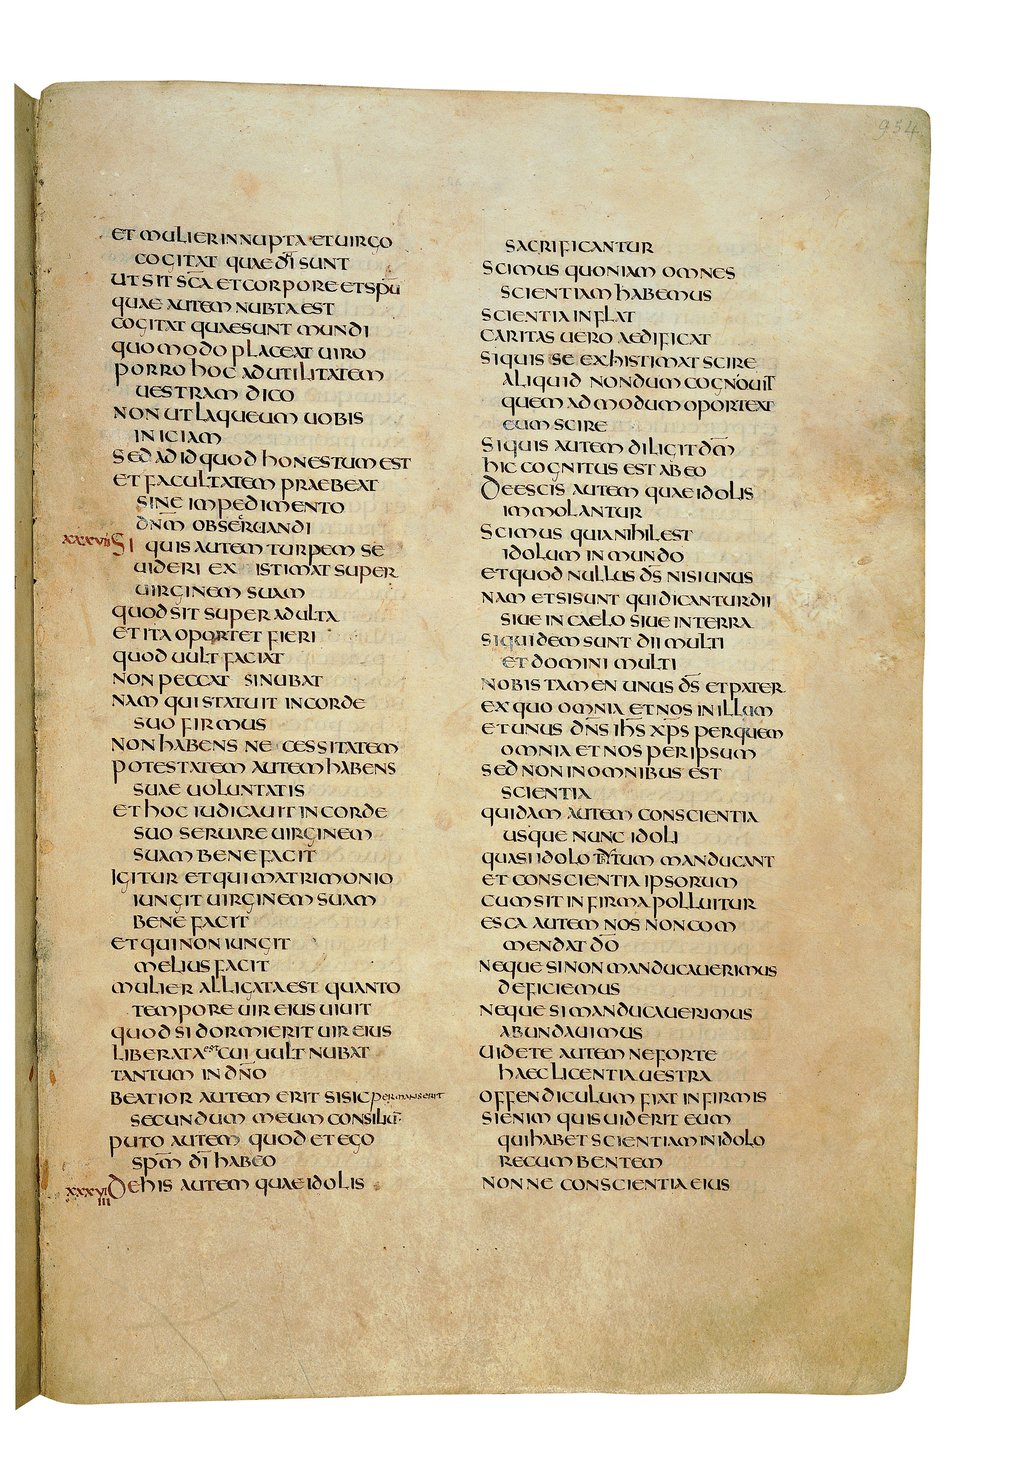 954
ET MULIER INNUPTA ET UIRGO
COGITAT QUAE D̅I SUNT
UT SIT SC̅A ET CORPORE ET SPU̅
QUAE AUTEM NUBTA EST
COGITAT QUAE SUNT MUNDI
QUOMODO PLACEAT UIRO
PORRO HOC AD UTILITATEM
UESTRAM DICO
NON UT LAQUEUM UOBIS
INICIAM
SED AD ID QUOD HONESTUM EST
ET FACULTATEM PRAEBEAT
SINE IMPEDIMENTO
DN̅M OBSERUANDI
XXXVII SI QUIS AUTEM TURPEM SE
UIDERI EX ISTIMAT SUPER
UIRGINEM SUAM
QUOD SIT SUPER ADULTA
ET ITA OPORTET FIERI
QUOD UULT FACIAT
NON PECCAT SI NUBAT
NAM QUI STATUIT IN CORDE
SUO FIRMUS
NON HABENS NE CESSITATEM
POTESTATEM AUTEM HABENS
SUAE UOLUNTATIS
ET HOC IUDICAUIT IN CORDE
SUO SERUARE UIRGINEM
SUAM BENE FACIT
IGITUR ET QUI MATRIMONIO
IUNGIT UIRGINEM SUAM
BENE FACIT
ET QUI NON IUNGIT
MELIUS FACIT
MULIER ALLIGATA EST QUANTO
TEMPORE UIR EIUS UIUIT
QUOD SI DORMIERIT UIR EIUS
LIBERATA est CUI UULT NUBAT
TANTUM IN DN̅O
BEATIOR AUTEM ERIT SI SIC permanserit
SECUNDUM MEUM CONSILIU̅
PUTO AUTEM QUOD ET EGO
SPM̅ D̅I HABEO
XXXVIIII DE HIS AUTEM QUAE IDOLIS
SACRIFICANTUR
SCIMUS QUONIAM OMNES
SCIENTIAM HABEMUS
SCIENTIA INFLAT
CARITAS UERO AEDIFICAT
SI QUIS SE EXHISTIMAT SCIRE
ALIQUID NONDUM COGNOUIT
QUEMADMODUM OPORTEAT
EUM SCIRE
SI QUIS AUTEM DILIGIT DM̅
HIC COGNITUS EST AB EO
DE ESCIS AUTEM QUAE IDOLIS
IMMOLANTUR
SCIMUS QUIA NIHIL EST
IDOLUM IN MUNDO
ET QUOD NULLUS DS̅ NISI UNUS
NAM ET SI SUNT QUI DICANTUR DII
SIUE IN CAELO SIUE IN TERRA
SIQUIDEM SUNT DII MULTI
ET DOMINI MULTI
NOBIS TAMEN UNUS DS̅ ET PATER
EX QUO OMNIA ET NOS IN ILLUM
ET UNUS DN̅S IH̅S XP̅S PER QUEM
OMNIA ET NOS PER IPSUM
SED NON IN OMNIBUS EST
SCIENTIA
QUIDAM AUTEM CONSCIENTIA
USQUE NUNC IDOLI
QUASI IDOLOTHYTUM MANDUCANT
ET CONSCIENTIA IPSORUM
CUM SIT INFIRMA POLLUITUR
ESCA AUTEM NOS NON COM
MENDAT DO̅
NEQUE SI NON MANDUCAUERIMUS
DEFICIEMUS
NEQUE SI MANDUCAUERIMUS
ABUNDAUIMUS
UIDETE AUTEM NE FORTE
HAEC LICENTIA UESTRA
OFFENDICULUM FIAT INFIRMIS
SI ENIM QUIS UIDERIT EUM
QUI HABET SCIENTIAM IN IDOLO
RECUMBENTEM
NONNE CONSCIENTIA EIUS